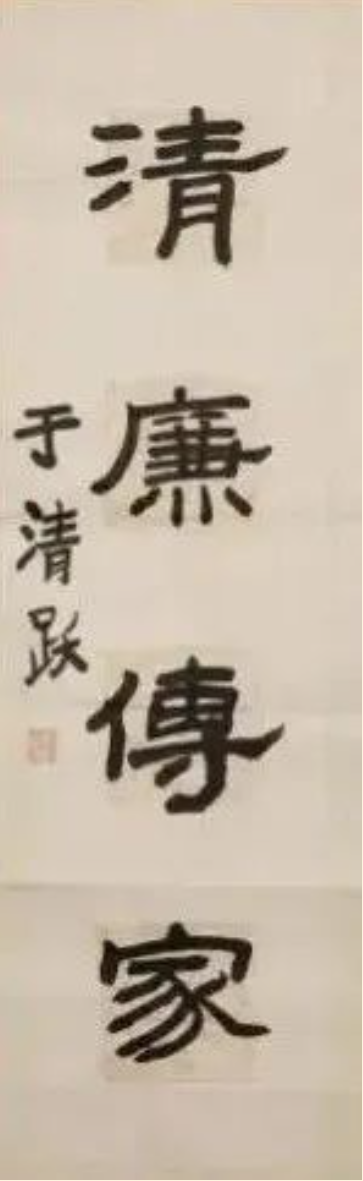 清廉傳家
于清跃